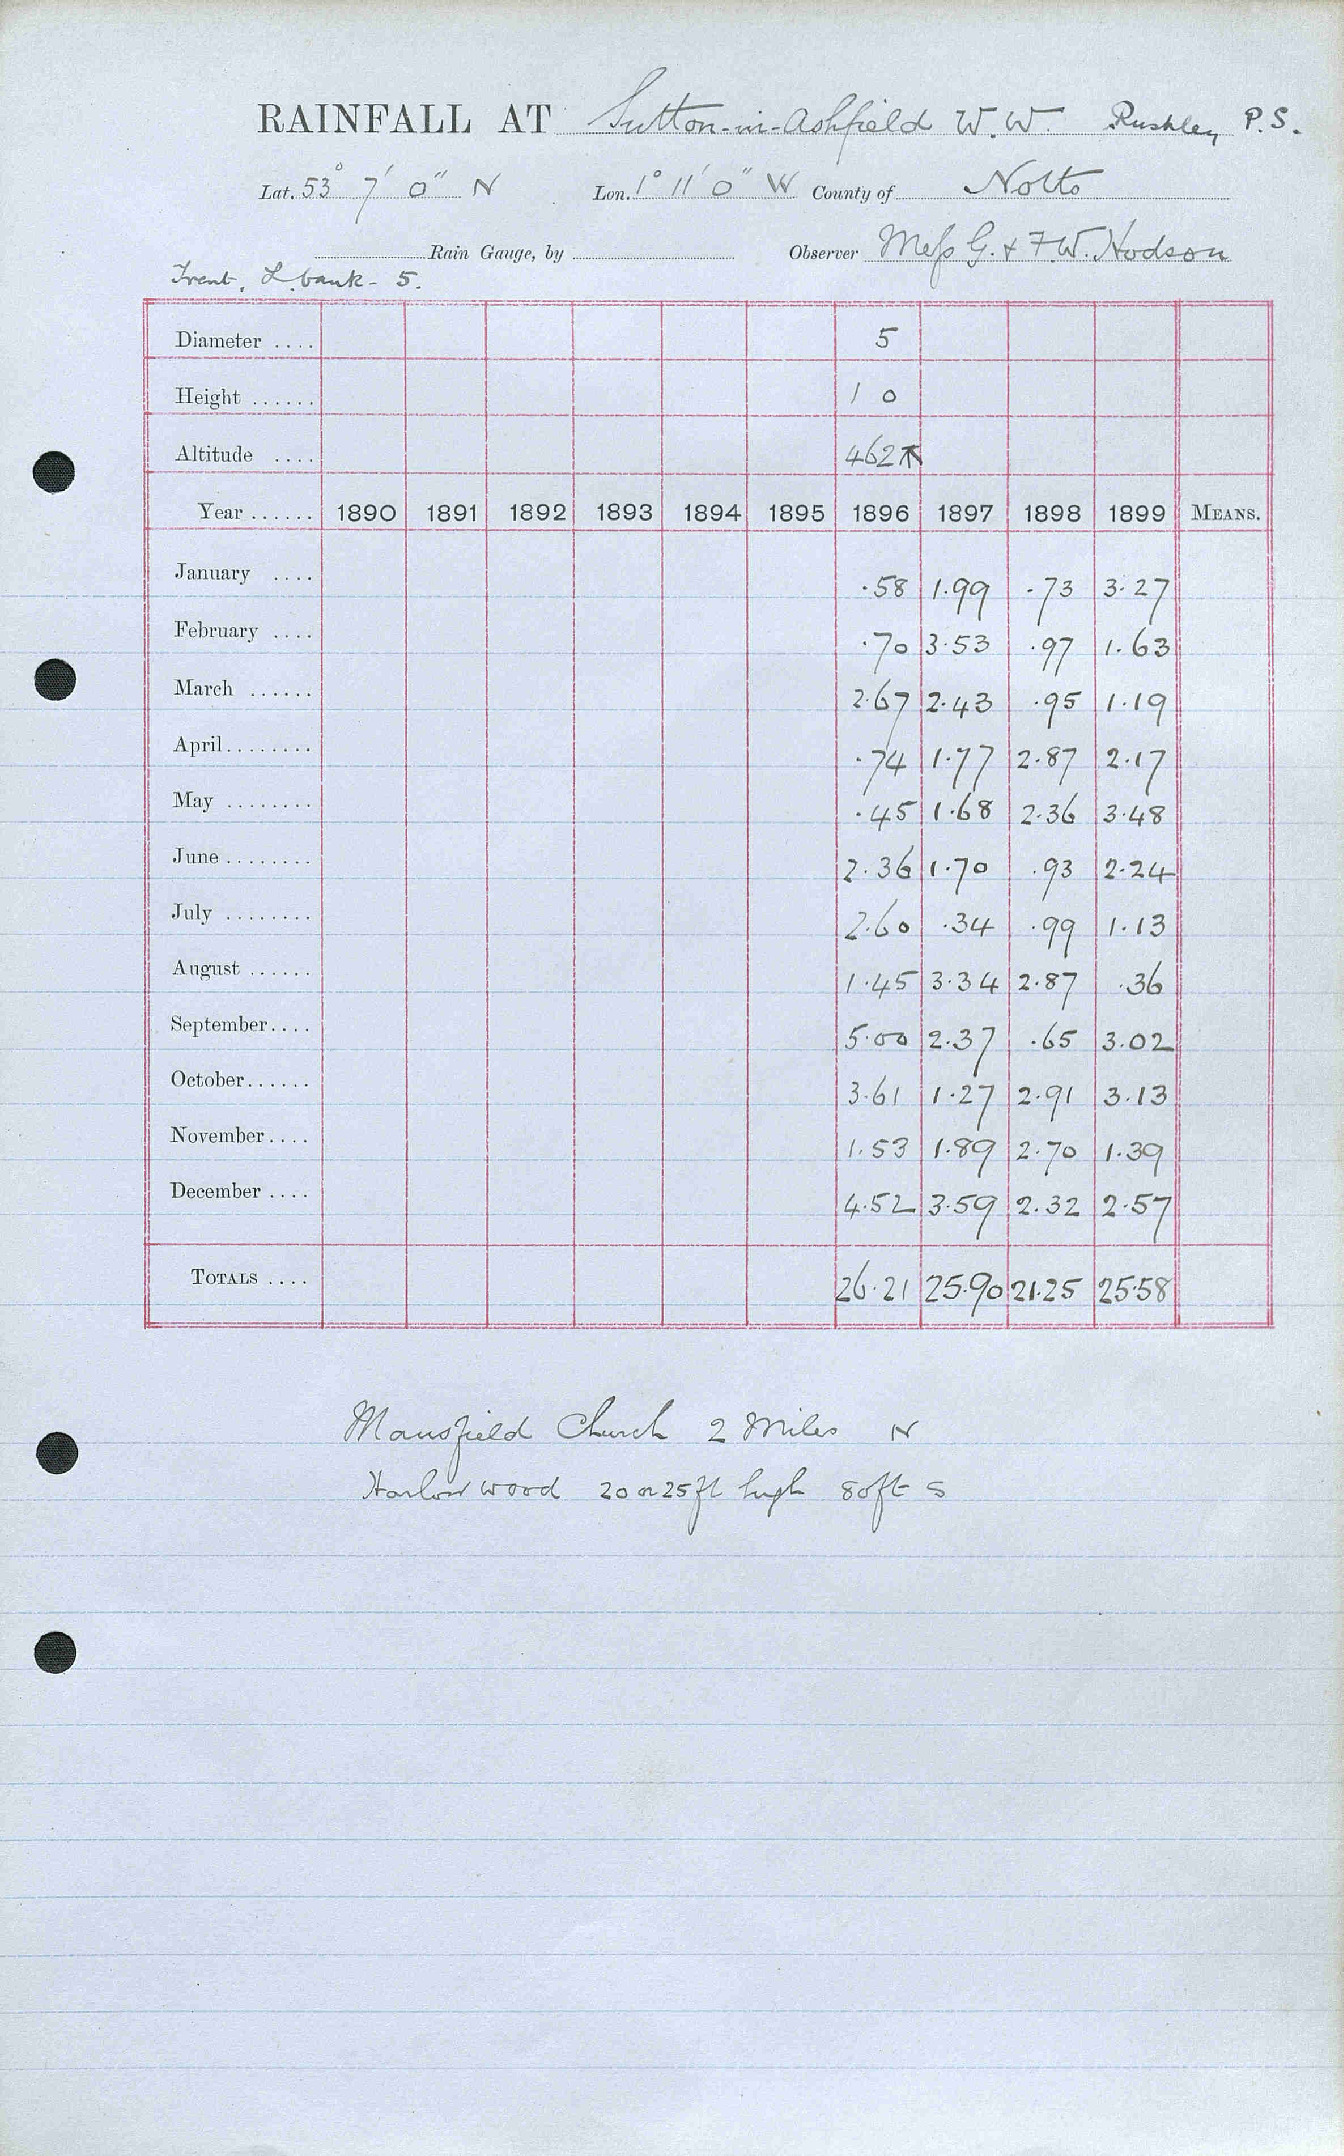 RAINFALL AT Sutton-in-Ashfield W.W. Rushley P.S.
Lat. 53° 7' 0" N Lon. 1° 11' 0" W County of Notts
Rain Gauge, by Observer Mess G. & F W. Hodson
Trent, L bank - 5.
Diameter .... 5
Height ...... 1 0
Altitude .... 462
Year ...... 1890 1891 1892 1893 1894 1895 1896 1897 1898 1899 MEANS.
January .... .58 1.99 .73 3.27
February .... .70 3.53 .97 1.63
March ...... 2.67 2.43 .95 1.19
April ........ .74 1.77 2.87 2.17
May ........ .45 1.68 2.36 3.48
June ........ 2.36 1.70 .93 2.24
July ........ 2.60 .34 .99 1.13
August ...... 1.45 3.34 2.87 .36
September .... 5.00 2.37 .65 3.02
October ...... 3.61 1.27 2.91 3.13
November .... 1.53 1.89 2.70 1.39
December .... 4.52 3.59 2.32 2.57
TOTALS .... 26.21 25.90 21.25 25.58
Mansfield Church 2 Miles N
Harlow wood 20 or 25 ft high 80 ft S